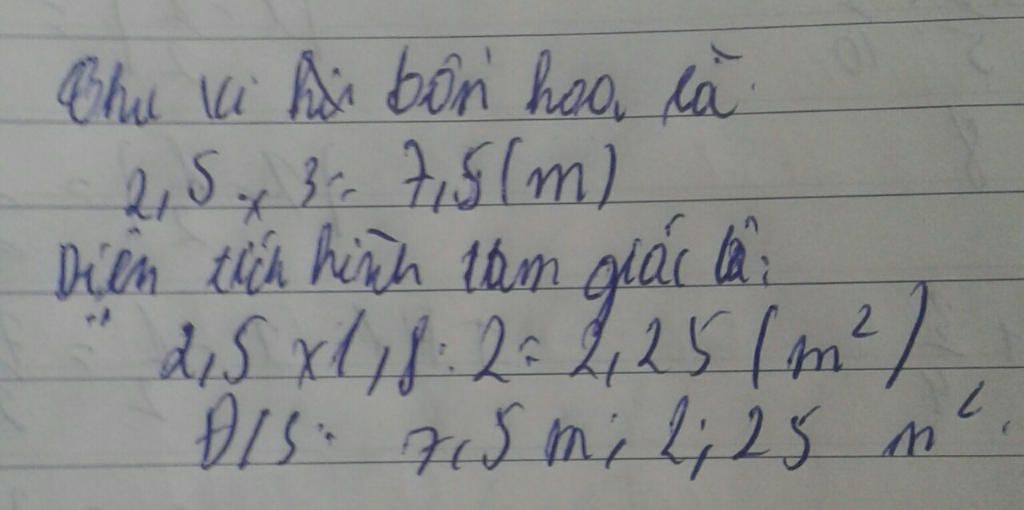 Chu vi bồn hoa là
2,5 x 3 = 7,5 (m)
Diện tích hình tam giác là:
2,5 x 1,8 : 2 = 2,25 (m²)
Đ/S: 7,5 m; 2,25 m².